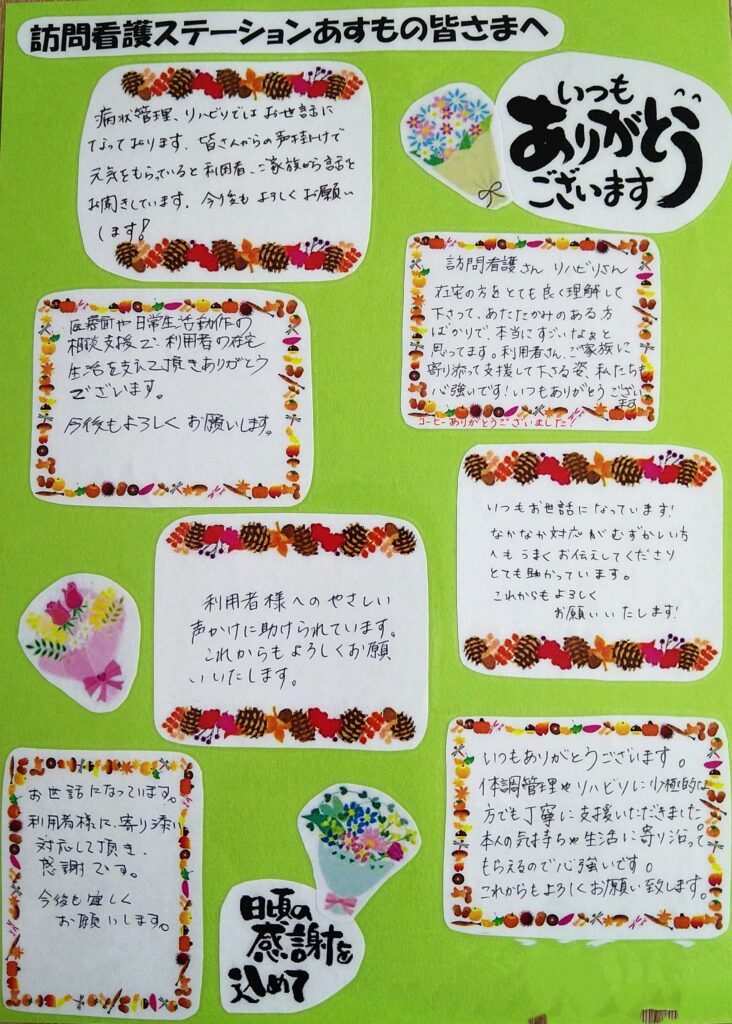 訪問看護ステーションあすもの皆さまへ
いつも
ありがとう
ございます
病状管理、リハビリではお世話に
なっております。皆さんからの声掛けで
元気をもらっていると利用者、ご家族から話を
お聞きしています。今後もよろしくお願い
します!
訪問看護さん リハビリさん
在宅の方をとても良く理解して
下さって、あたたかみのある方
ばかりで、本当にすごいなぁと
思ってます。利用者さん、ご家族に
寄り添って支援して下さる姿、私たちも
心強いです!いつもありがとうござい
ます
コーヒーありがとうございました!
医療面や日常生活動作の
相談支援で、利用者の在宅
生活を支えて頂きありがとう
ございます。
今後もよろしくお願いします。
いつもお世話になっています!
なかなか対応がむずかしい方
へもうまくお伝えしてくださり
とても助かっています。
これからもよろしく
お願いいたします!
利用者様へのやさしい
声かけに助けられています。
これからもよろしくお願
いいたします。
いつもありがとうございます。
体調管理やリハビリに消極的な
方でも丁寧に支援いただきました。
本人の気持ちや生活に寄り沿って
もらえるので心強いです。
これからもよろしくお願い致します。
お世話になっています。
利用者様に、寄り添い
対応して頂き、
感謝です。
今後も宜しく
お願いします。
日頃の
感謝を
込めて